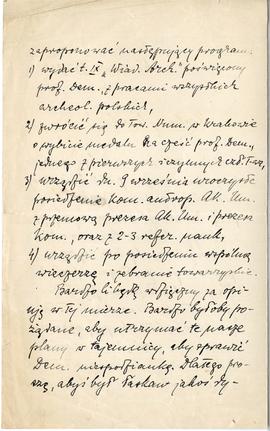 zaproponować następujący program:
1) wydać t. IX „Wiad. Arch." poświęcony
prof. Dem., z pracami wszystkich
archeol. polskich,
2) zwrócić się do Tow. Num. w Krakowie
o wybicie medalu na cześć prof. Dem.,
jednego z pierwszych i czynnych czł. Tow,
3) urządzić dn. 9 września uroczyste
posiedzenie Kom. antrop. Ak. Um.
z przemową prezesa Ak. Um. i prezesa
Kom., oraz z 2-3 refer. nauk,
4) urządzić po posiedzeniu wspólną
wieczerzę i zebranie towarzyskie.
Bardzo będę wdzięczny za opi-
nję w tej mierze. Bardzo byłoby po-
żądane, aby utrzymać te nasze
plany w tajemnicy, aby sprawić
Dem. niespodziankę. Dlatego pro-
szę, abyś był łaskaw jakoś dy-